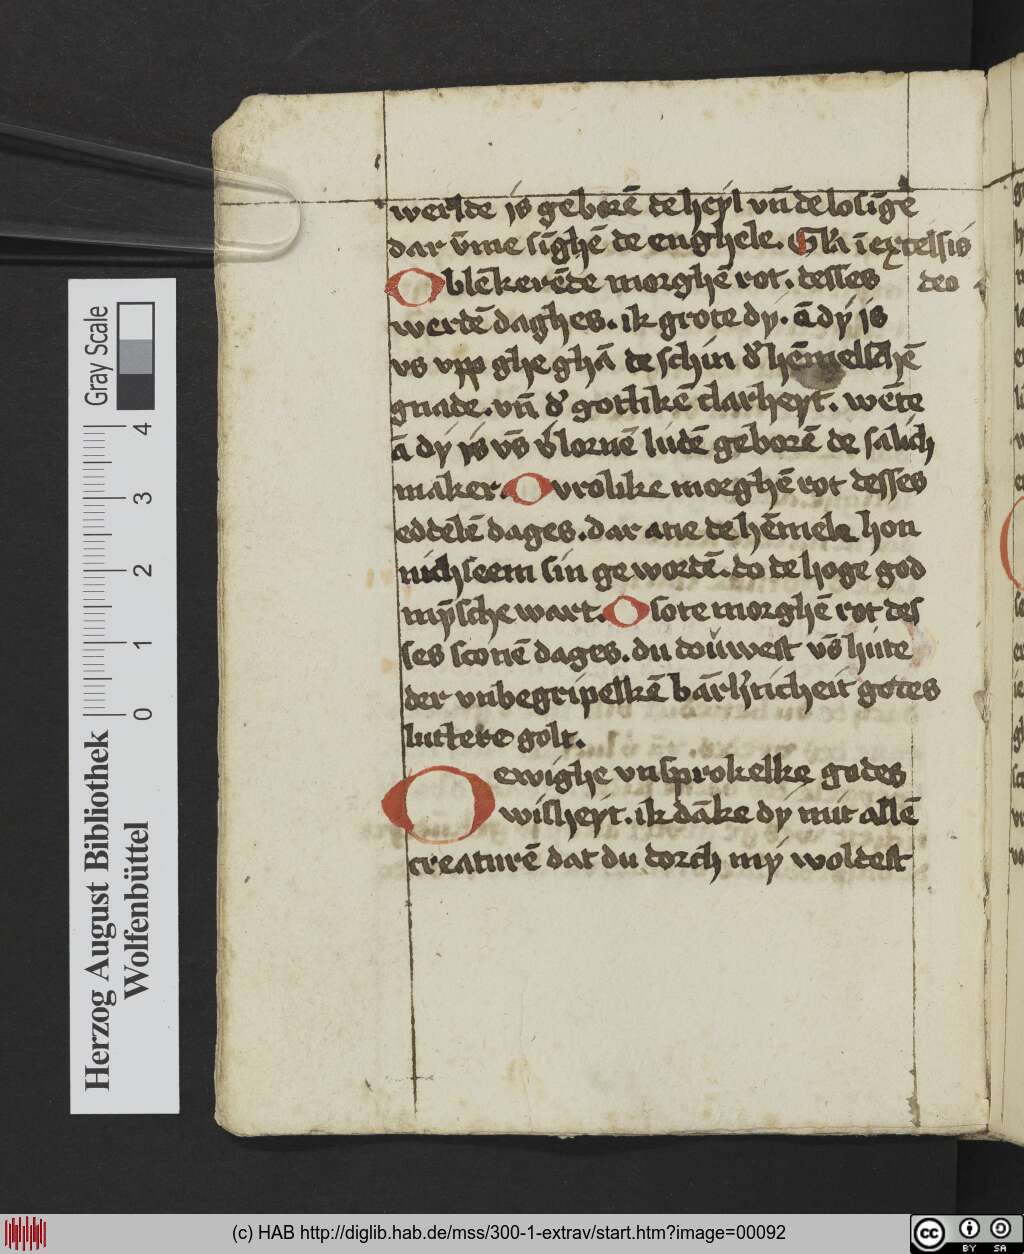 werlde js geborē de heyl vn̄ de losīge
dar v̄me sīghē de enghele. Gl'a ī excelsis
deo
O blēkerēde morghē rot. desses
werdē daghes. ik grote dy. ā dy js
vs vpp ghe ghā de schin d' hēmelschē
gnade. vn̄ d' gotlikē clarheyt. wēte
ā dy js vs̄ v'lornē ludē geborē de salich
maker. O vrolike morghē rot desses
eddelē dages. dar ane de hēmele hon
nich seem sin gewordē. do de hoge god
mȳsche wart. O sote morghē rot des
ses sconē dages. du douwest vs̄ hute
der vnbegripelkē bārh'ticheit godes
luttere golt.
O ewighe vnsprokelke godes
wisheyt. ik dāke dy mit allē
creaturē dat du dorch my woldest
Gray Scale
0 1 2 3 4
Herzog August Bibliothek
Wolfenbüttel
(c) HAB http://diglib.hab.de/mss/300-1-extrav/start.htm?image=00092
cc BY SA